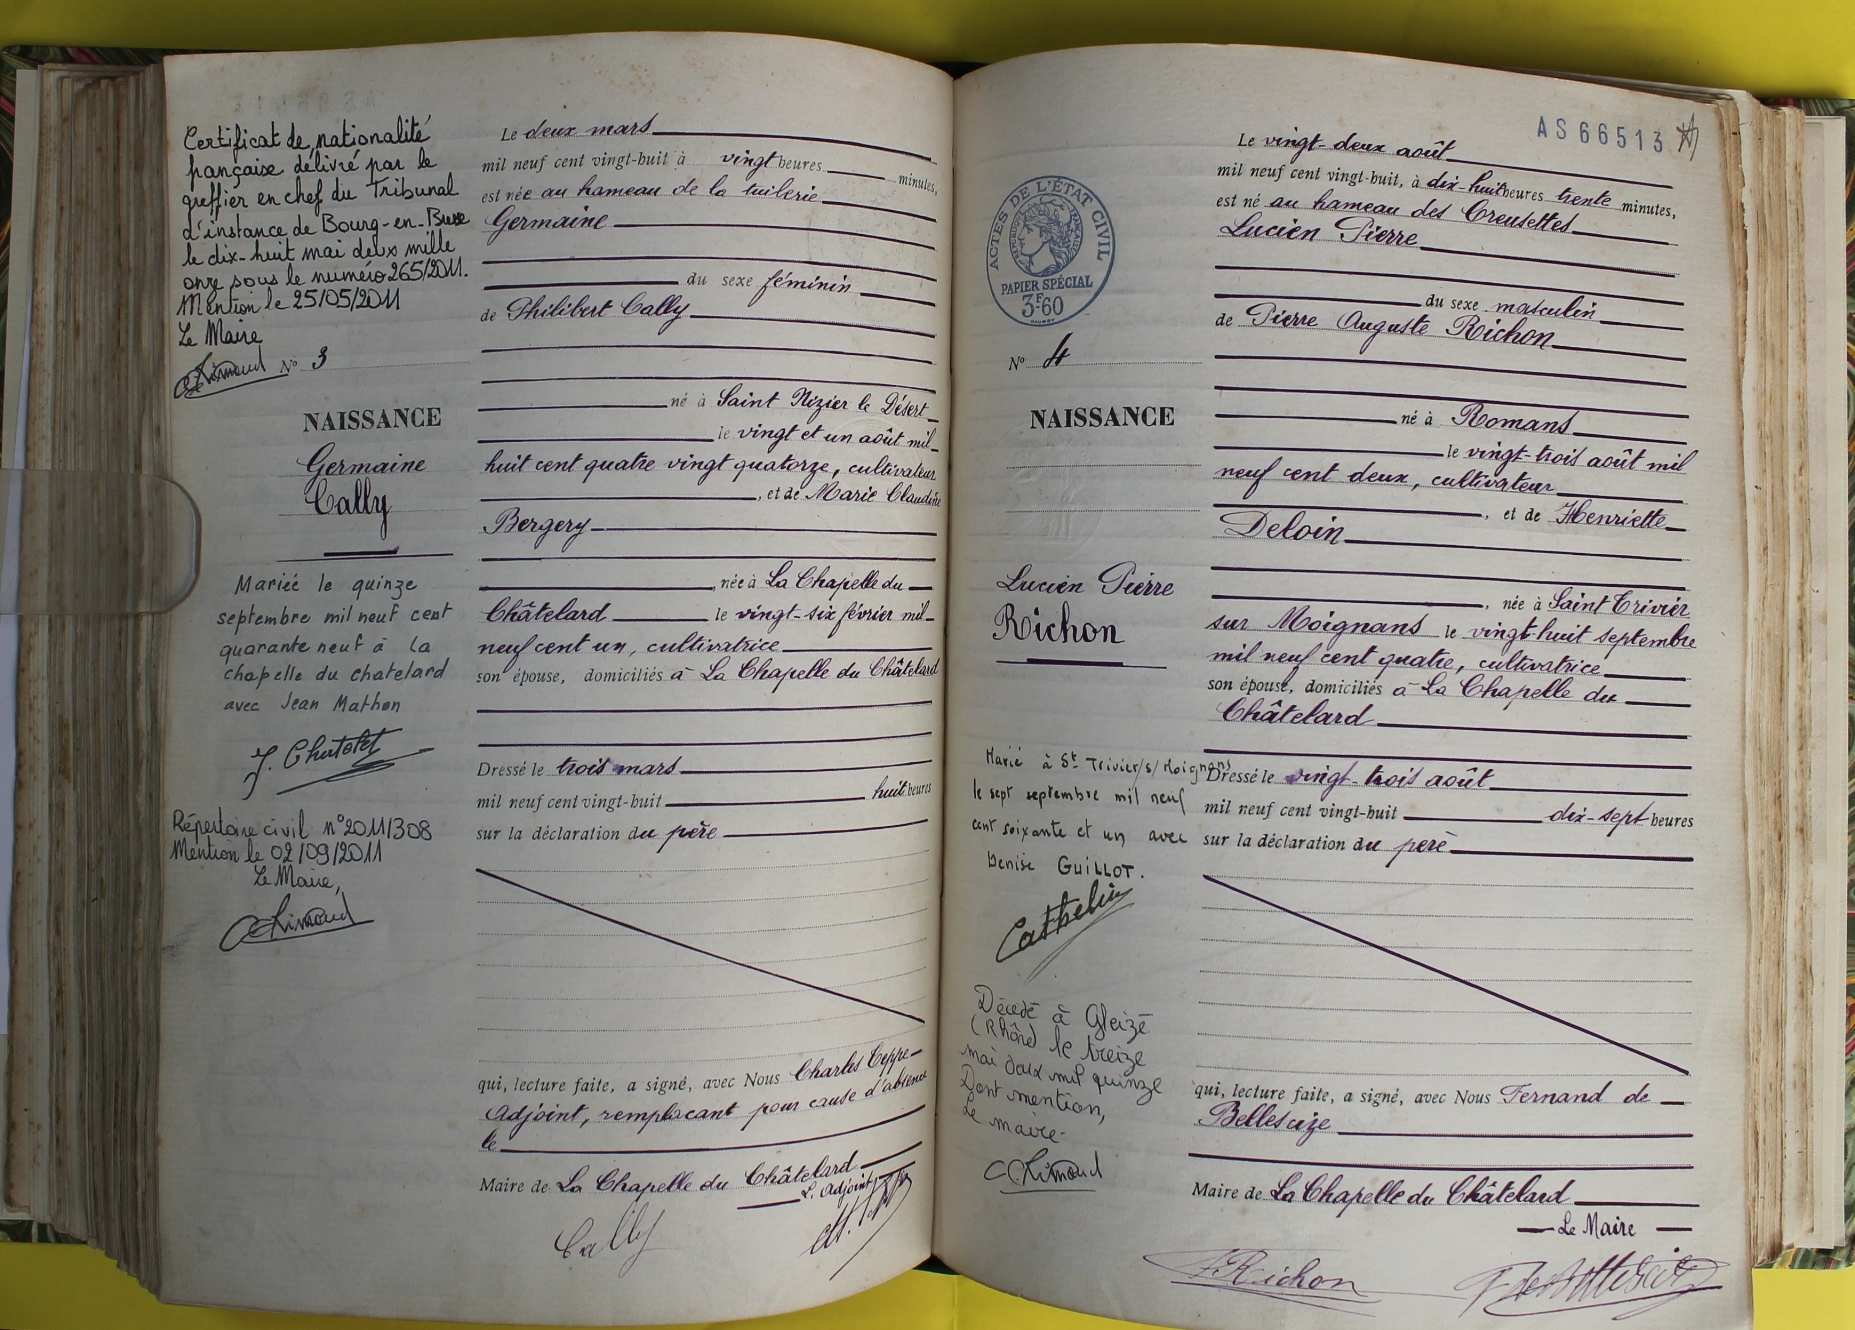 Certificat de nationalité
française délivré par le
greffier en chef du Tribunal
d'instance de Bourg-en-Bresse
le dix-huit mai deux mille
onze sous le numéro 265/2011.
Mention le 25/05/2011
Le Maire
N° 3
NAISSANCE
Germaine
Cally
Mariée le quinze
septembre mil neuf cent
quarante neuf à la
chapelle du chatelard
avec Jean Mathon
Répertoire civil n°2011/308
Mention le 02/09/2011
Le Maire,
Le deux mars
mil neuf cent vingt-huit à vingt heures minutes,
est née au hameau de la tuilerie
Germaine
du sexe féminin
de Philibert Cally
né à Saint Nizier le Désert
le vingt et un août mil
huit cent quatre vingt quatorze, cultivateur
, et de Marie Claudine
Bergery
, née à La Chapelle du
Châtelard le vingt-six février mil
neuf cent un, cultivatrice
son épouse, domiciliés à La Chapelle du Châtelard
Dressé le trois mars
mil neuf cent vingt-huit huit heures
sur la déclaration du père
qui, lecture faite, a signé, avec Nous Charles Ceppe
Adjoint, remplacant pour cause d'absence
le
Maire de La Chapelle du Châtelard
L'Adjoint
Cally
ACTES DE L'ÉTAT CIVIL
PAPIER SPÉCIAL
3F.60
N° 4
NAISSANCE
Lucien Pierre
Richon
Marié à St Trivier/s/Moignans
le sept septembre mil neuf
cent soixante et un avec
Denise GUILLOT.
Cathelin
Décédé à Gleizé
(Rhône) le treize
mai deux mil quinze
Dont mention,
Le maire
AS66513
Le vingt-deux août
mil neuf cent vingt-huit, à dix-huit heures trente minutes,
est né au hameau des Creusettes
Lucien Pierre
du sexe masculin
de Pierre Auguste Richon
né à Romans
le vingt-trois août mil
neuf cent deux, cultivateur
, et de Henriette
Deloin
, née à Saint Trivier
sur Moignans le vingt-huit septembre
mil neuf cent quatre, cultivatrice
son épouse, domiciliés à La Chapelle du
Châtelard
Dressé le vingt-trois août
mil neuf cent vingt-huit dix-sept heures
sur la déclaration du père
qui, lecture faite, a signé, avec Nous Fernand de
Bellescize
Maire de La Chapelle du Châtelard
Le Maire
Richon